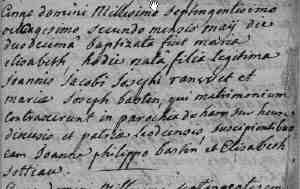 Anno domini Millesimo Septingentesimo
octuagesimo secundo mensis maÿ die
duodecima baptizata fuit maria
elisabeth hodie nata filia legitima
Joannis Jacobi Josephi et
maria Joseph qui matrimonium
contraxerunt in parochia de ham sur heure
et patoha leodiensis, suscipientibus
eam Joanne philippo bastin et Elisabeth
sotteau